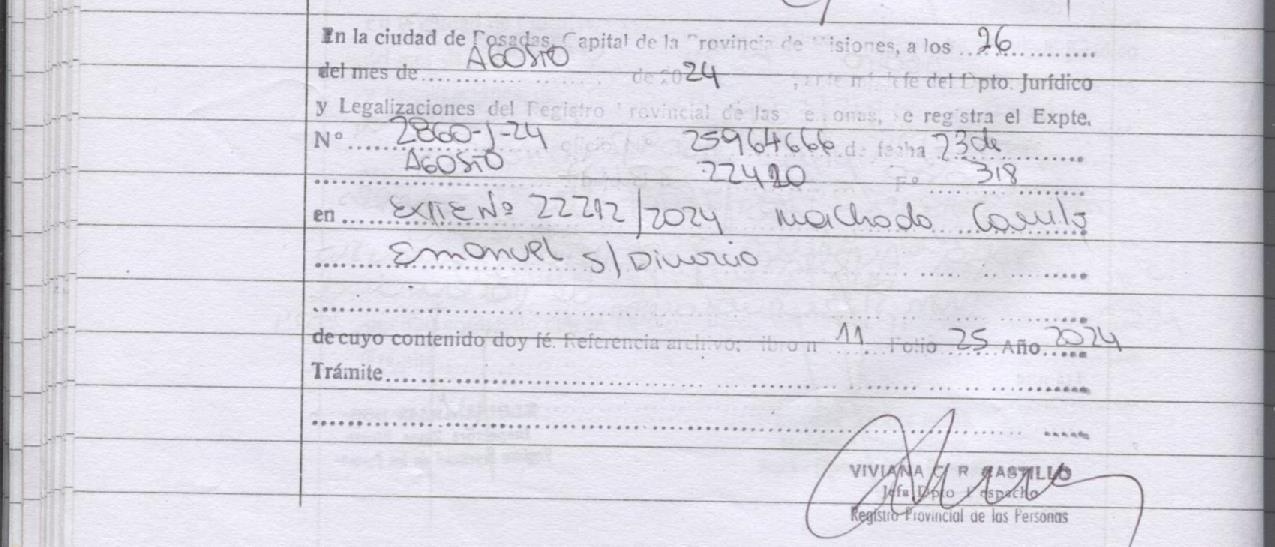 En la ciudad de Posadas, Capital de la Provincia de Misiones, a los 26
del mes de AGOSTO de 2024, ante mi Jefe del Dpto. Jurídico
y Legalizaciones del Registro Provincial de las Personas, se registra el Expte.
Nº 2860-J-24 25964666 de fecha 23 de
AGOSTO 22420 Fº 318
en EXPTE Nº 22212/2024 Machado Camilo
Emanuel s/ Divorcio
de cuyo contenido doy fé. Referencia archivo, libro n 11 Folio 25 Año 2024
Trámite
VIVIANA C R CASTILLO
Jefa Dpto Despacho
Registro Provincial de las Personas